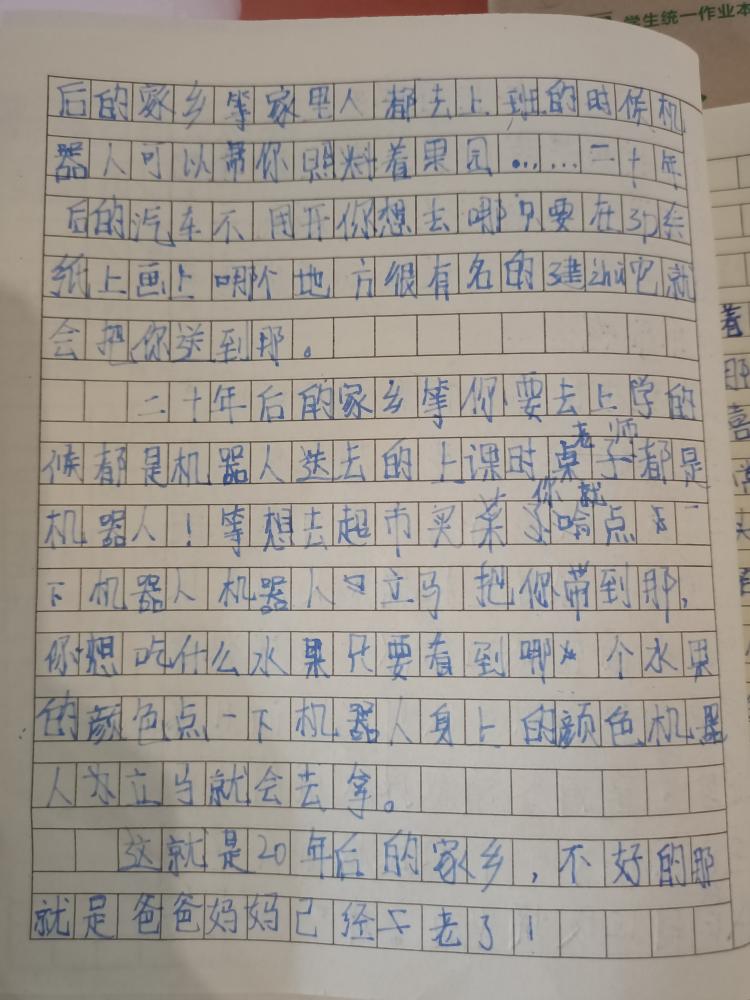 学生统一作业本
后的家乡等家里人都去上班的时候机
器人可以帮你照料着果园……二十年
后的汽车不用开你想去哪只要在3D绘
纸上画上哪个地方很有名的建zhu它就
会把你送到那。
二十年后的家乡等你要去上学的
候都是机器人送去的上课时老师都是
机器人！等想去超市买菜你就点一
下机器人机器人立马把你带到那，
你想吃什么水果只要看到哪个水果
的颜色点一下机器人身上的颜色机器
人立马就会去拿。
这就是20年后的家乡，不好的那
就是爸爸妈妈已经老了！
着
那
喜